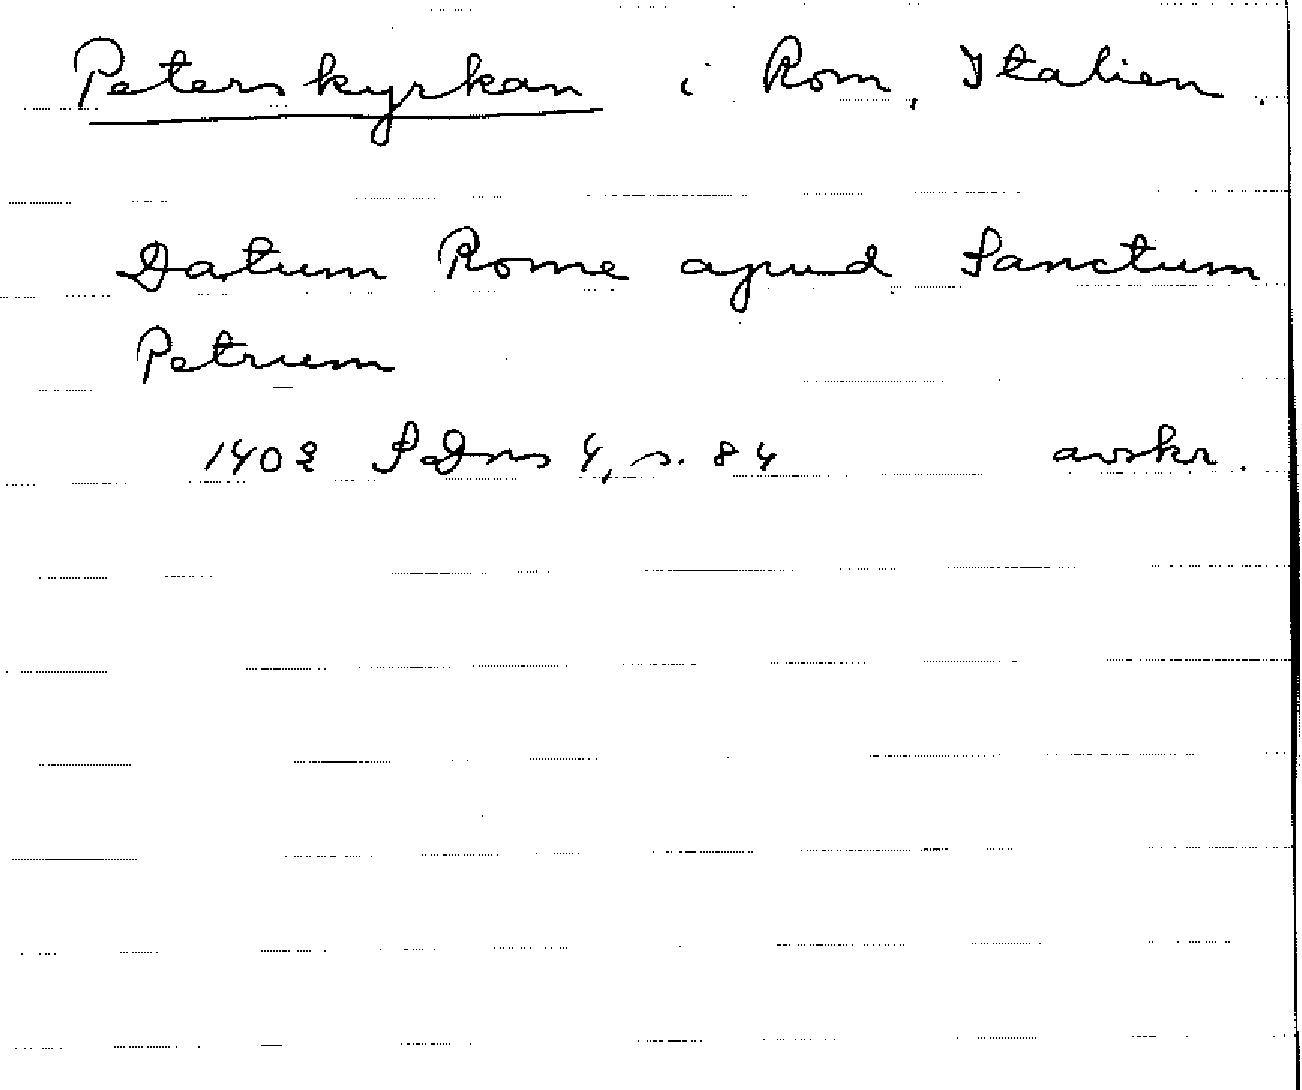 Peterskyrkan i Rom, Italien.
Datum Rome apud Sanctum
Petrum
1402 SDns 4, s. 84 avskr.